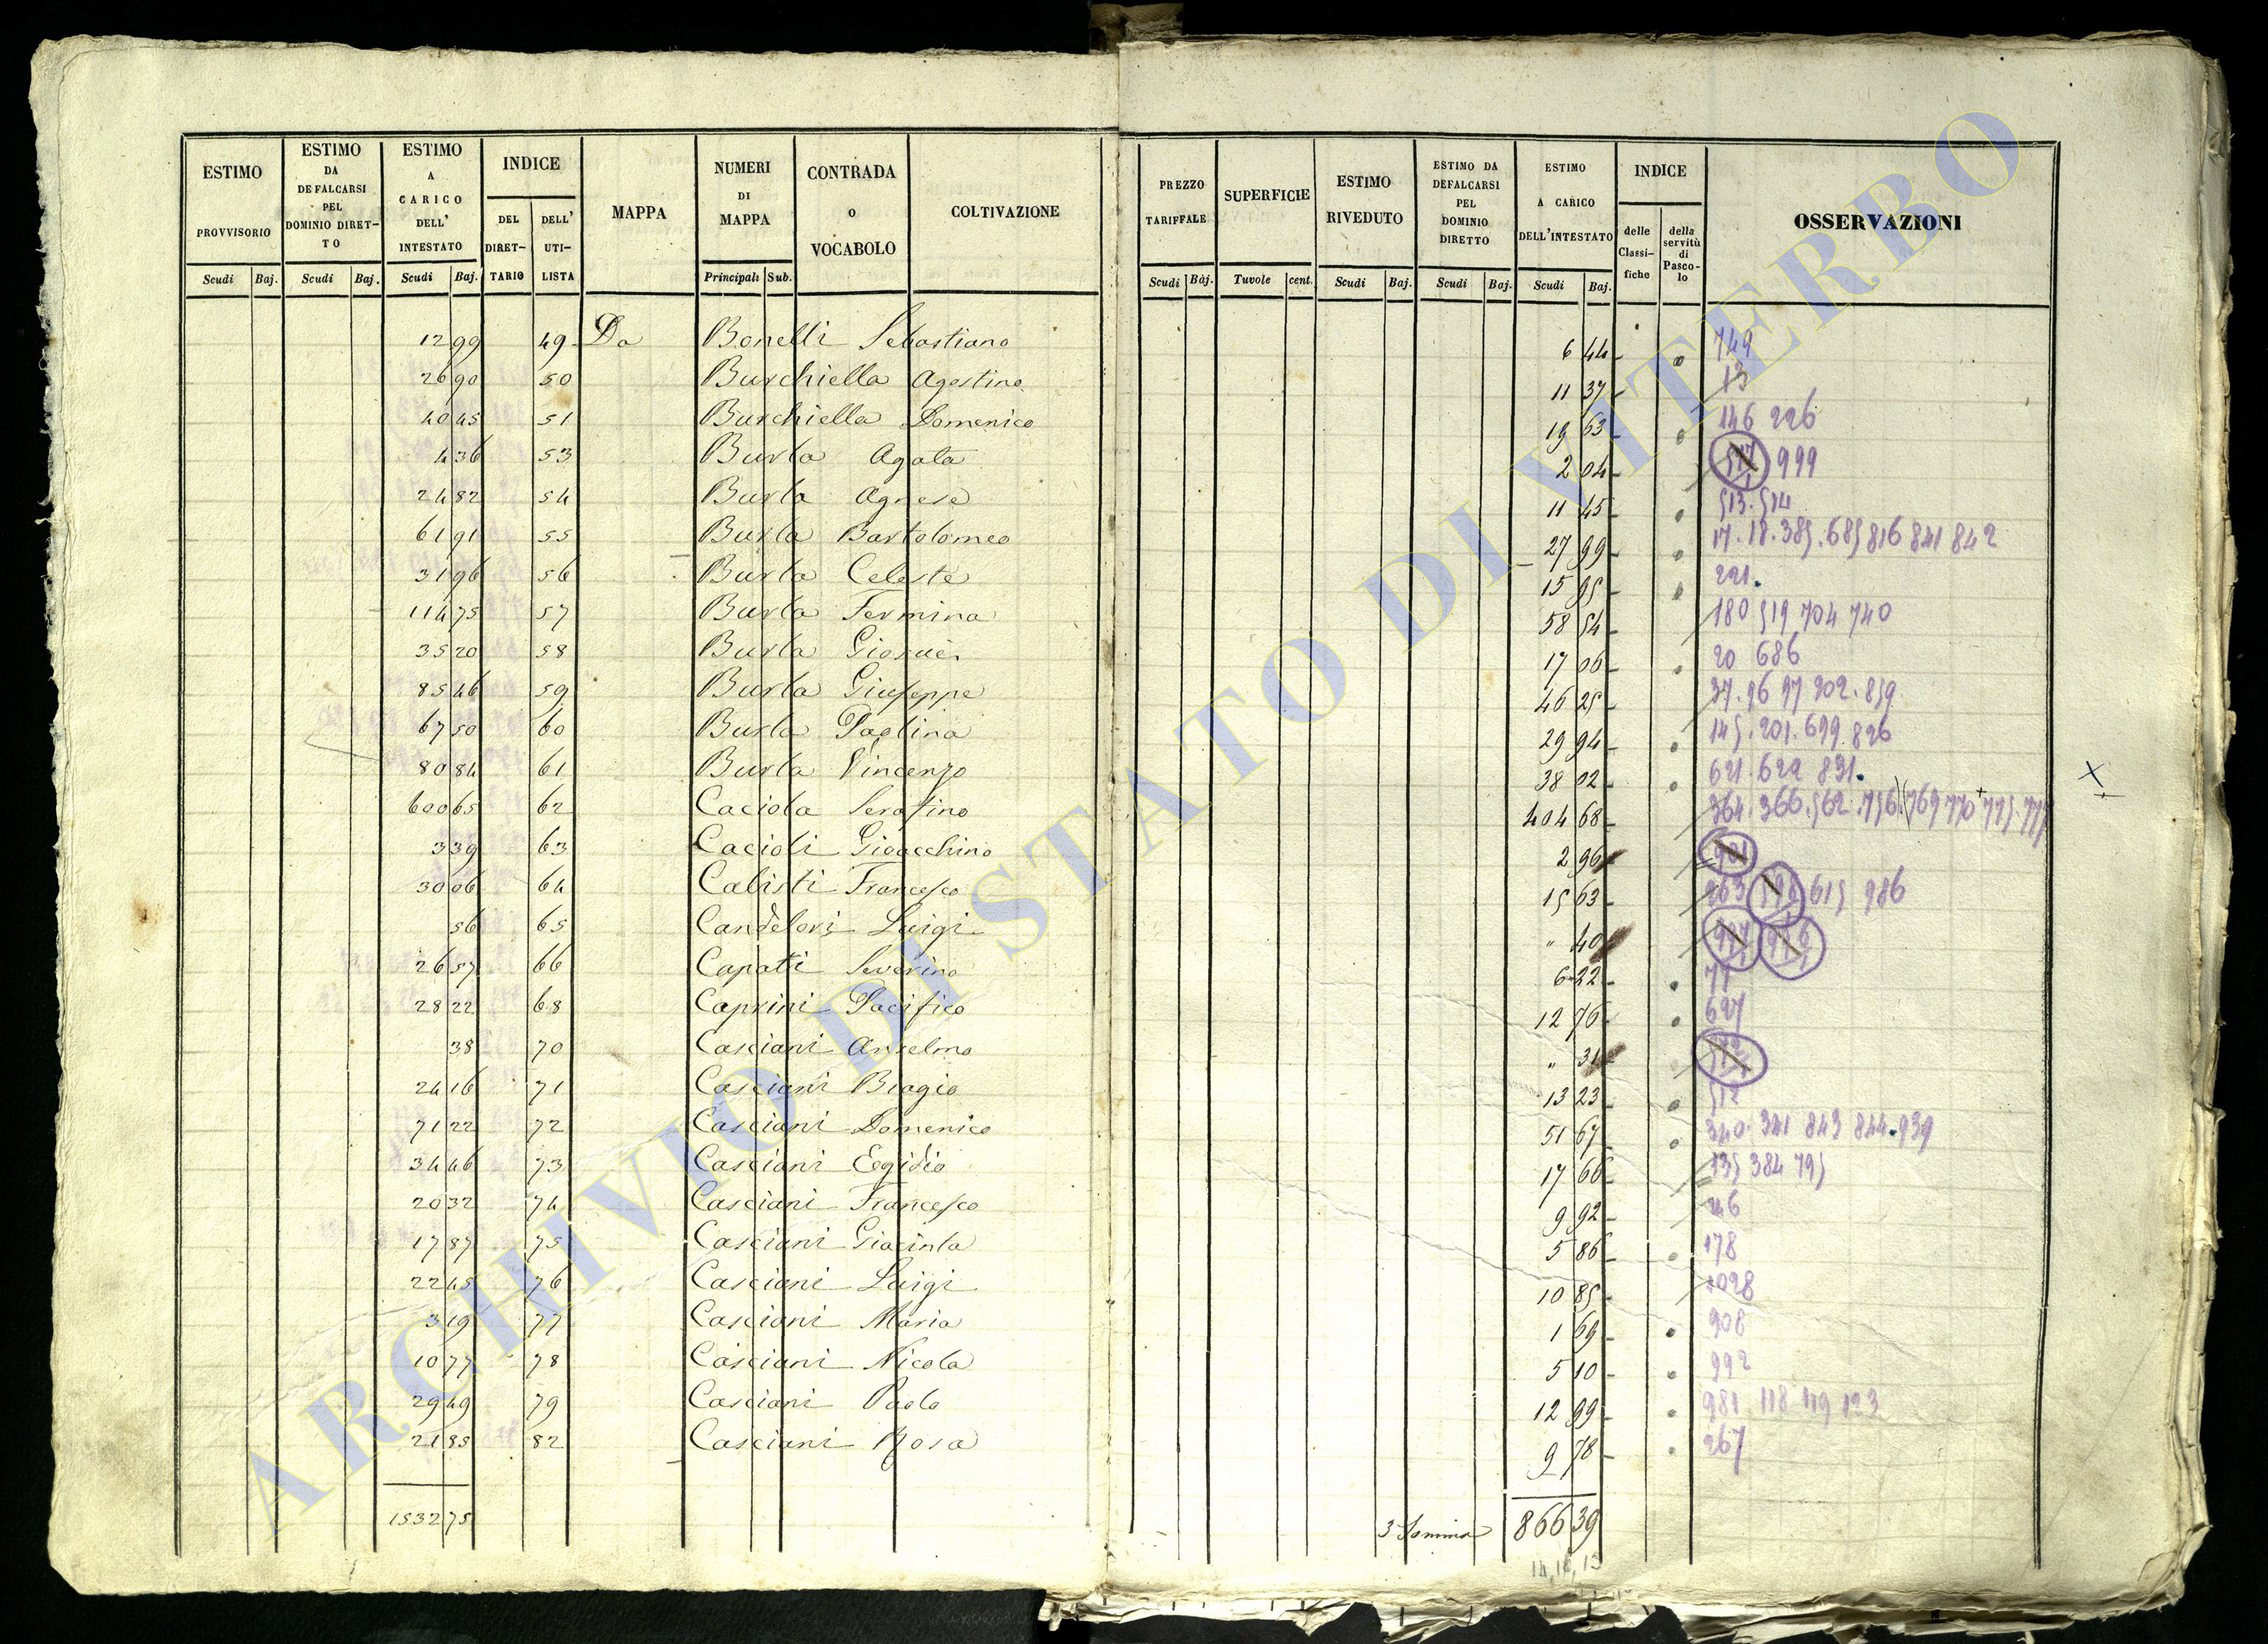 ESTIMO PROVVISORIO Scudi Baj.
ESTIMO DA DEFALCARSI PEL DOMINIO DIRET-TO Scudi Baj.
ESTIMO A CARICO DELL' INTESTATO Scudi Baj.
INDICE DEL DIRET-TARIO DELL' UTI-LISTA
MAPPA
NUMERI DI MAPPA Principali Sub.
CONTRADA O VOCABOLO
COLTIVAZIONE
PREZZO TARIFFALE Scudi Baj.
SUPERFICIE Tavole cent.
ESTIMO RIVEDUTO Scudi Baj.
ESTIMO DA DEFALCARSI PEL DOMINIO DIRETTO Scudi Baj.
ESTIMO A CARICO DELL'INTESTATO Scudi Baj.
INDICE delle Classi-fiche della servitù di Pasco-lo
OSSERVAZIONI
12 99 49 Da Bonelli Sebastiano 6 44 749
26 90 50 Burchiella Agostino 11 37 13
40 45 51 Burchiella Domenico 19 63 146 226
4 36 53 Burla Agata 2 04 999
24 82 54 Burla Agnese 11 45 513.514
61 91 55 Burla Bartolomeo 27 99 17.18.385.685 816 841 842
31 96 56 Burla Celeste 15 95 221.
114 75 57 Burla Fermina 58 54 180 519 704 740
35 20 58 Burla Giosuè 17 06 20 686
85 46 59 Burla Giuseppe 46 25 37.96 97 202.859
67 50 60 Burla Paolina 29 94 145.201.699.826
80 84 61 Burla Vincenzo 38 02 621.622 831.
600 65 62 Caciola Serafino 404 68 364.366.562.756.(769 770 + 775.777
X
3 39 63 Cacioli Gioacchino 2 96 901
30 06 64 Calisti Francesco 15 63 263 615 986
56 65 Candelori Luigi " 40
26 57 66 Capati Severino 6 22 77
28 22 68 Caprini Pacifico 12 76 627
38 70 Casciani Anselmo " 31
24 16 71 Casciani Biagio 13 23 512
71 22 72 Casciani Domenico 51 67 340.341 843 844.939
34 46 73 Casciani Egidio 17 66 135 384 795
20 32 74 Casciani Francesco 9 92 246
17 87 75 Casciani Giacinta 5 86 178
22 45 76 Casciani Luigi 10 85 1028
3 19 77 Casciani Maria 1 69 908
10 77 78 Casciani Nicola 5 10 992
29 49 79 Casciani Paolo 12 99 981 118 119 123
21 85 82 Casciani Rosa 9 78 267
1532 75 3 Somma 866 39
ARCHIVIO DI STATO DI VITERBO